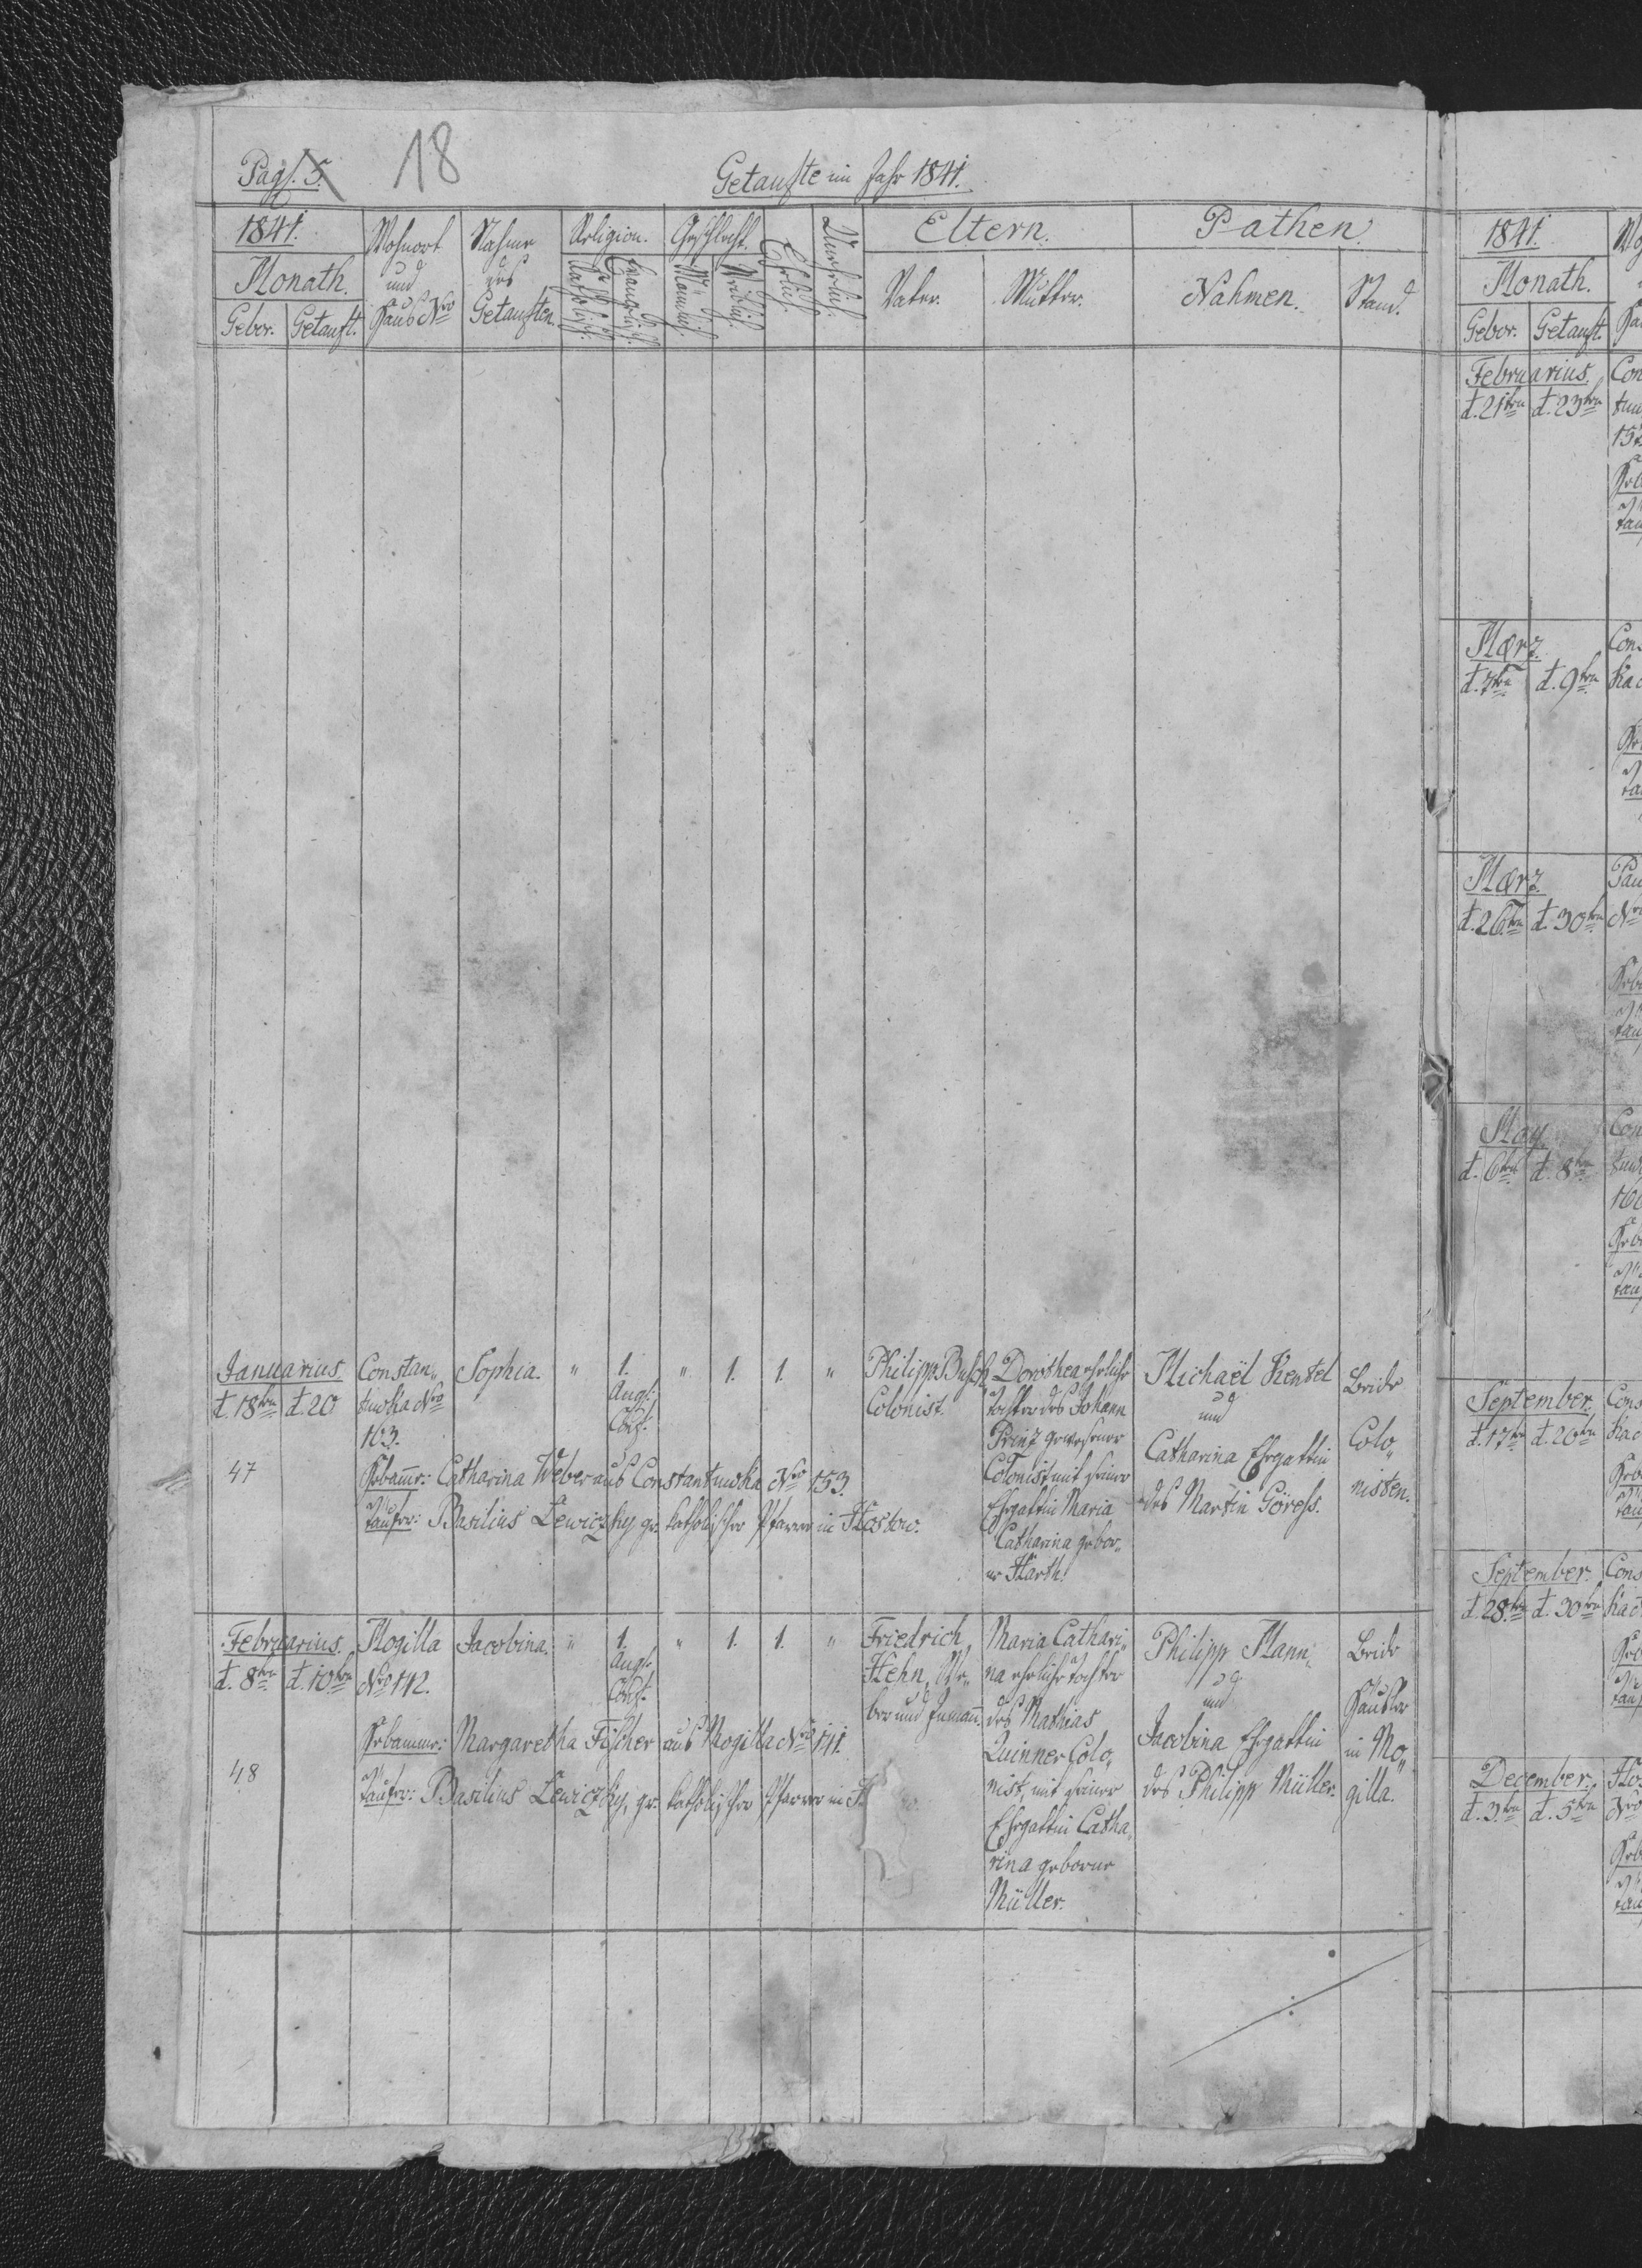 Pag. 5.
18
Getaufte im Jahr 1841.
1841.
Monath.
Gebor. Getauft.
Wohnort
und
Haus Nro
Nahme
des
Getauften.
Religion.
Katholisch.
Evangelisch.
Geschlecht.
Männlich.
Weiblich.
Ehelich.
Unehelich.
Eltern.
Vater. Mutter.
Pathen.
Nahmen. Stand.
Januarius.
d. 18ten d. 20
47
Constan„
tinowka Nro
163.
Sophia. " 1. " 1. 1. "
Augs:
Conf:
Philipp Busch
Colonist.
Dorothea eheliche
Tochter des Johann
Prinz gewesener
Colonist mit seiner
Ehegattin Maria
Catharina gebor„
ne Harth.
Michaël Kentel
und
Catharina Ehegattin
des Martin Göress.
Beide
Colo„
nisten.
Hebamme: Catharina Weber aus Constantinowka Nro 153.
Taufer: Basilius Lewiczky gr. katholischer Pfarrer in
Februarius.
d. 8ten d. 10ten
48
Mogilla
Nro 112.
Jacobina. " 1. " 1. 1. "
Augs:
Conf:
Friedrich
Hehn, We„
ber und Inmann.
Maria Cathari„
na eheliche Tochter
des Mathias
Quinner Colo„
nist, mit seiner
Ehegattin Catha„
rina geborne
Müller.
Philipp Mann
und
Jacobina Ehegattin
des Philipp Müller.
Beide
Häusler
in Mo„
gilla.
Hebamme: Margaretha Fischer aus Mogilla Nro 111.
Taufer: Basilius Lewiczky, gr. katholischer Pfarrer in
1841.
Monath.
Gebor. Getauft.
Februarius.
d. 21ten d. 23ten
Mærz.
d. 7ten d. 9ten
Mærz.
d. 26ten d. 30ten
May.
d. 6ten d. 8ten
September.
d. 17ten d. 20ten
September.
d. 28ten d. 30ten
December.
d. 3ten d. 5ten